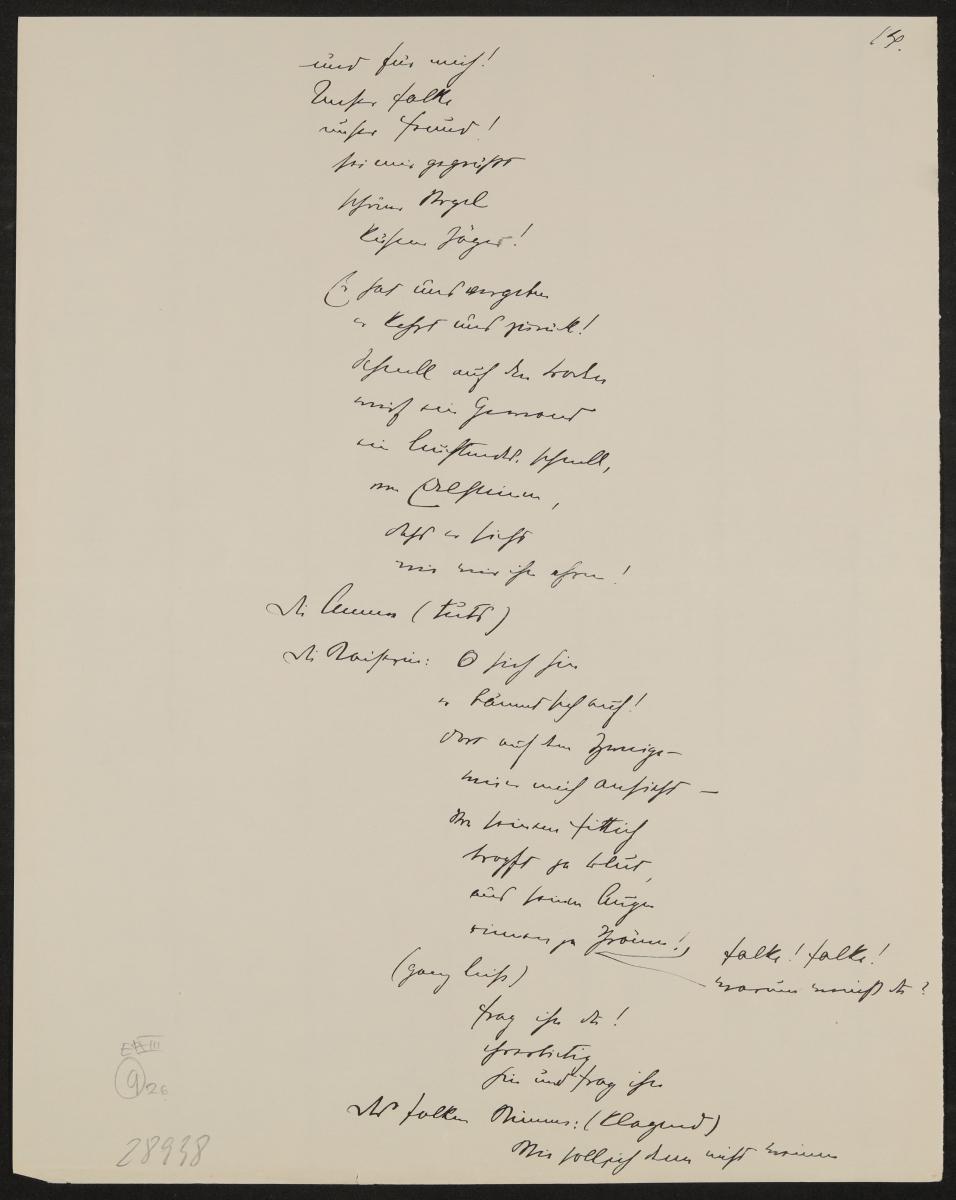 14.
und für mich!
Unser Falke
unser Freund!
sei mir gegrüsst
schöner Vogel
kühner Jäger!
Er hat uns vergeben
er kehrt uns zurück!
Schnell auf den boden
wirf ein Gewand
ein leuchtendes, schnell,
von Edelsteinen,
dass er sieht
wie wir ihn ehren!
Die Amme (tut's)
Die Kaiserin: O sieh hin
er bäumt sich auf!
dort auf dem Zweige —
wie er mich ansieht —
Von seinem Fittich
tropft ja blut,
aus seinen Augen
rinnen ja Thränen!
Falke! Falke!
warum weinst du?
(ganz leise)
frag ihn du!
ehrerbietig
hin und frag ihn
Des Falken Stimme: (klagend)
Wie soll ich denn nicht weinen
9
26
28938